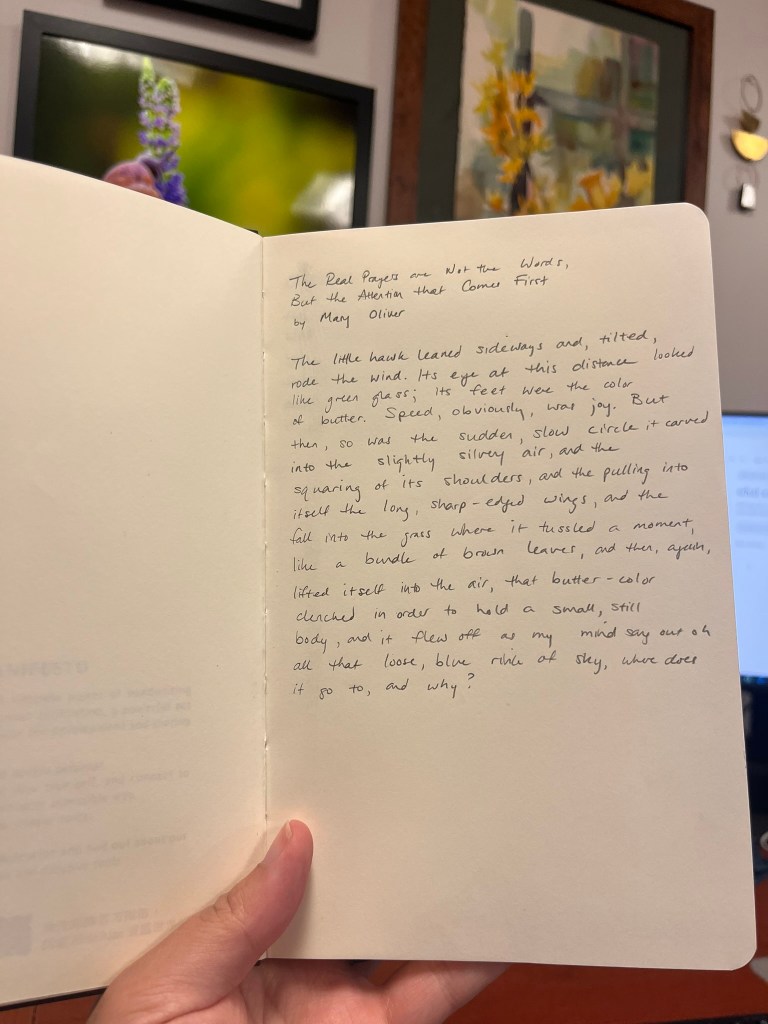 The Real Prayers are Not the Words,
But the Attention that Comes First
by Mary Oliver
The little hawk leaned sideways and, tilted,
rode the wind. Its eye at this distance looked
like green glass; its feet were the color
of butter. Speed, obviously, was joy. But
then, so was the sudden, slow circle it carved
into the slightly silvery air, and the
squaring of its shoulders, and the pulling into
itself the long, sharp-edged wings, and the
fall into the grass where it tussled a moment,
like a bundle of brown leaves, and then, again,
lifted itself into the air, that butter-color
clenched in order to hold a small, still
body, and it flew off as my mind say out oh
all that loose, blue rink of sky, where does
it go to, and why?